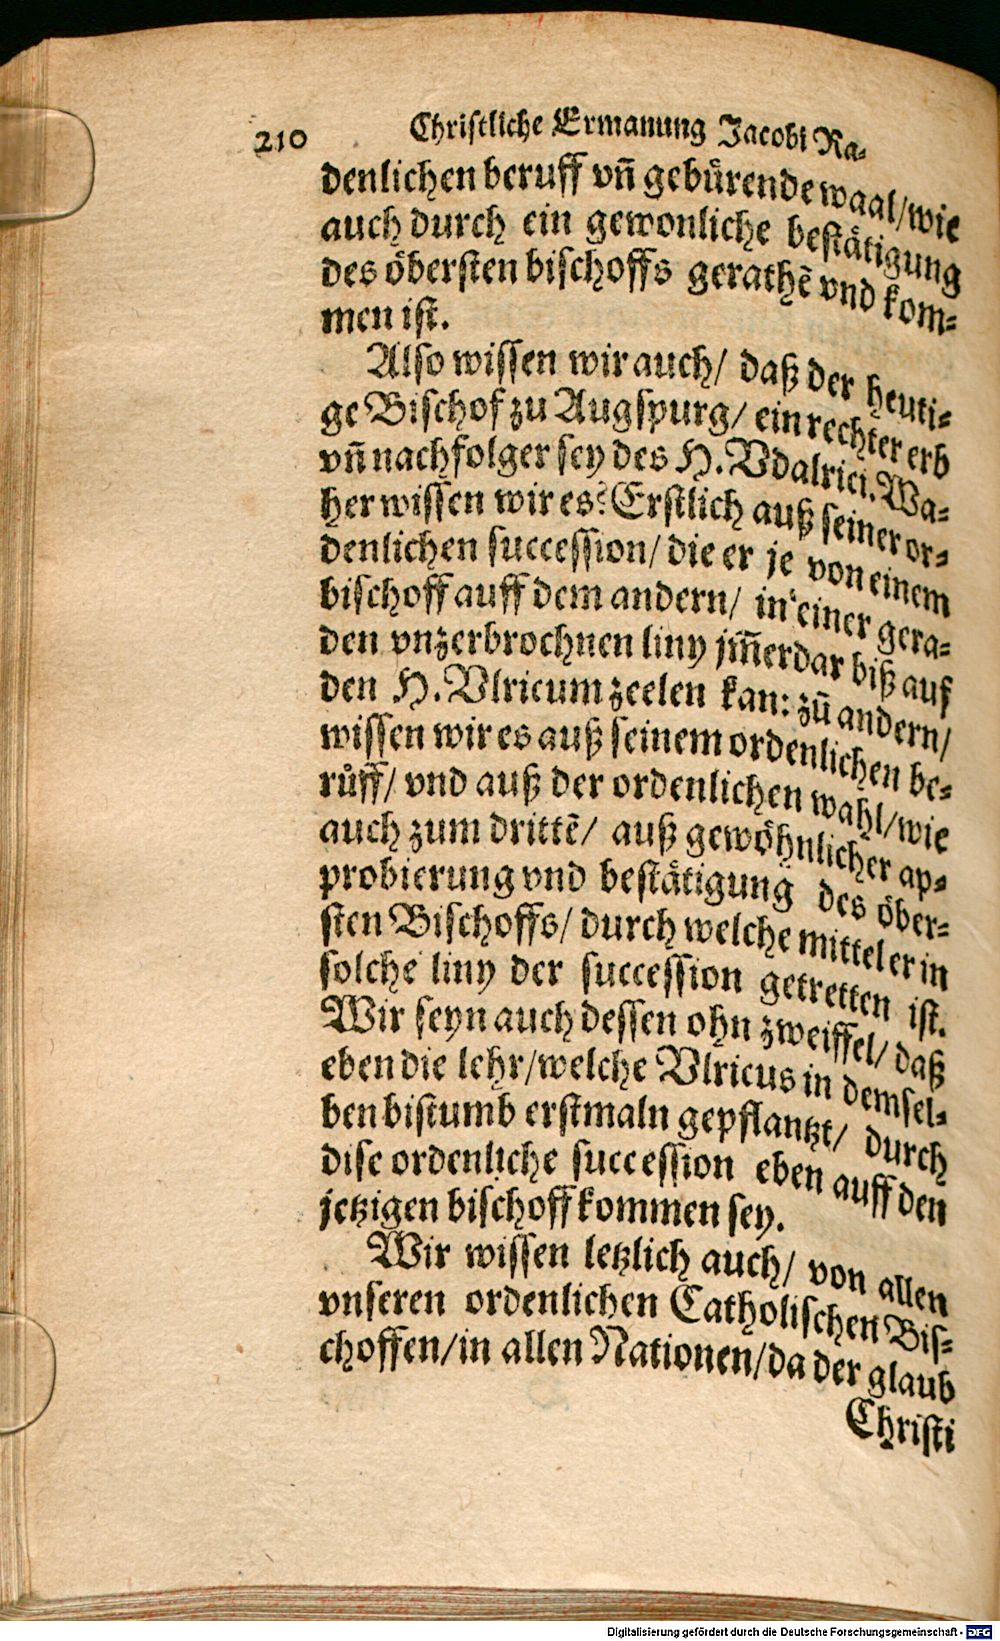 210 Christliche Ermanung Jacobi Ra-
denlichen beruff vñ gebürende waal/wie
auch durch ein gewonliche bestätigung
des öbersten bischoffs gerathẽ vnd kom-
men ist.
Also wissen wir auch/ daß der heuti-
ge Bischof zu Augspurg/ ein rechter erb
vñ nachfolger sey des H. Vdalrici. Wa-
her wissen wir es? Erstlich auß seiner or-
denlichen succession/ die er je von einem
bischoff auff dem andern/ in einer gera-
den vnzerbrochnen liny jm̃erdar biß auf
den H. Vlricum zeelen kan: zũ andern/
wissen wir es auß seinem ordenlichen be-
růff/ vnd auß der ordenlichen wahl/wie
auch zum drittẽ/ auß gewöhnlicher ap-
probierung vnd bestätigung des öber-
sten Bischoffs/ durch welche mittel er in
solche liny der succession getretten ist.
Wir seyn auch dessen ohn zweiffel/ daß
eben die lehr/welche Vlricus in demsel-
ben bistumb erstmaln gepflantzt/ durch
dise ordenliche succession eben auff den
jetzigen bischoff kommen sey.
Wir wissen letzlich auch/ von allen
vnseren ordenlichen Catholischen Bis-
choffen/in allen Nationen/da der glaub
Christi
Digitalisierung gefördert durch die Deutsche Forschungsgemeinschaft - DFG